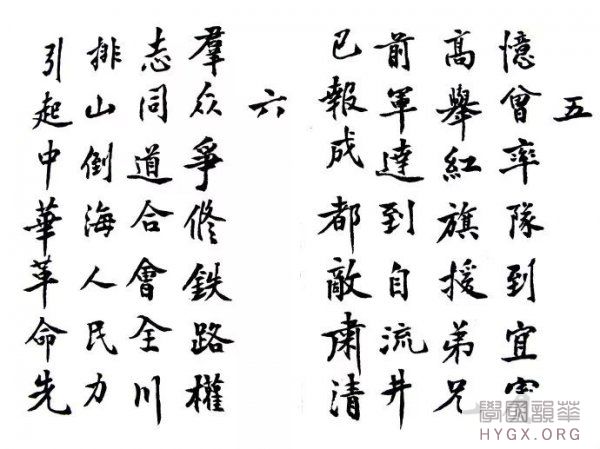 五
憶曾率隊到宜賓
高舉紅旗援弟兄
前軍達到自流井
已報成都敵肅清
六
羣众爭修鉄路權
志同道合會全川
排山倒海人民力
引起中華革命先
學國韻華
HYGX.ORG